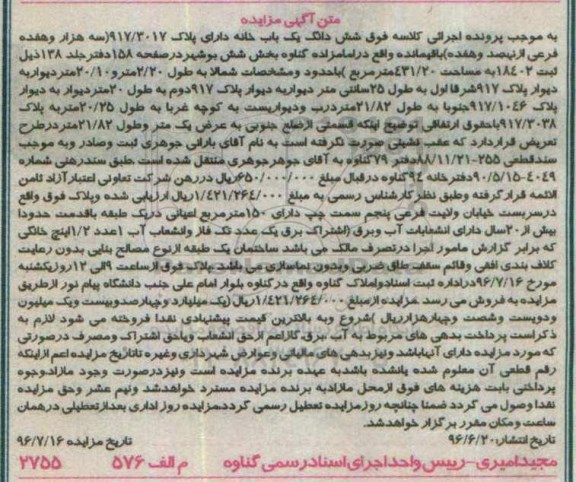 متن آگهی مزایده
به موجب پرونده اجرائی کلاسه فوق شش دانگ یک باب خانه دارای پلاک ۹۱۷/۳۰۱۷(سه هزار وهفده
فرعی ازنهصد وهفده)باقیمانده واقع درامامزاده گناوه بخش شش بوشهردرصفحه ۱۵۸دفترجلد ۱۳۸ذیل
ثبت ۱۸۴۰۲به مساحت ۴۳۱/۲۰مترمربع )باحدود ومشخصات شمالا به طول ۲/۲۰مترو۲۰/۱۰متردیواربه
دیوار پلاک ۹۱۷شرقا اول به طول ۲۵سانتی متر دیواربه دیوار پلاک ۹۱۷دوم به طول ۲۰متردیوار به دیوار
پلاک ۹۱۷/۱۰۴۶جنوبا به طول ۲۱/۸۲متردرب ودیواریست به کوچه غربا به طول ۲۰/۲۵متربه پلاک
۹۱۷/۳۰۳۸باحقوق ارتفاقی توضیح اینکه قسمتی ازضلع جنوبی به عرض یک متر وطول ۲۱/۸۲متردرطرح
تعریض قراردارد که عقب نشینی صورت نگرفته است به نام آقای بارانی جوهری ثبت وصادر وبه موجب
سندقطعی ۲۵۵-۸۸/۱۱/۲۱دفتر ۷۹گناوه به آقای جوهرجوهری منتقل شده است .طبق سندرهنی شماره
۴۰۴۹-۹۰/۵/۱۵دفترخانه ۹۴گناوه درقبال مبلغ ۶۵۰/۰۰۰/۰۰۰ریال دررهن شرکت تعاونی اعتبارآزاد ثامن
الائمه قرارگرفته وطبق نظرکارشناس رسمی به مبلغ ۱/۴۲۱/۲۶۴/۰۰۰ریال ارزیابی شده وپلاک فوق واقع
درسربست خیابان ولایت فرعی پنجم سمت چپ دارای ۱۵۰مترمربع اعیانی دریک طبقه باقدمت حدودا
بیش از۲۰سال دارای انشعابات آب وبرق(اشتراک برق یک عدد تک فاز وانشعاب آب ۱عدد ۱/۲اینچ خانگی
که برابر گزارش مامور اجرا درتصرف مالک می باشد ساختمان یک طبقه ازنوع مصالح بنایی بدون رعایت
کلاف بندی افقی وقائم سقف طاق ضربی وبدون نماسازی می باشد.پلاک فوق ازساعت ۹الی ۱۲روزیکشنبه
مورخ ۹۶/۷/۱۶دراداره ثبت اسنادواملاک گناوه واقع درگناوه بلوار امام علی جنب دانشگاه پیام نور ازطریق
مزایده به فروش می رسد .مزایده ازمبلغ ۱/۴۲۱/۲۶۴/۰۰۰ریال(یک میلیارد وچهارصدوبیست ویک میلیون
ودویست وشصت وچهارهزارریال )شروع وبه بالاترین قیمت پیشنهادی نقدا فروخته می شود لازم به
ذکراست پرداخت بدهی های مربوط به آب ،برق،گازاعم ازحق انشعاب ویاحق اشتراک ومصرف درصورتی
که مورد مزایده دارای آنهاباشد ونیزبدهی های مالیاتی وعوارض شهرداری وغیره تاتاریخ مزایده اعم ازاینکه
رقم قطعی آن معلوم شده یانشده باشدبه عهده برنده مزایده است ونیزدرصورت وجود مازادوجوه
پرداختی بابت هزینه های فوق ازمحل مازادبه برنده مزایده مسترد خواهدشد ونیم عشر وحق مزایده
نقدا وصول می گردد ضمنا چنانچه روزمزایده تعطیل رسمی گردد،مزایده روز اداری بعدازتعطیلی درهمان
ساعت ومکان مقرر برگزار خواهدشد.
تاریخ انتشار:۹۶/۶/۲۰ تاریخ مزایده ۹۶/۷/۱۶
مجیدامیری-رییس واحداجرای اسنادرسمی گناوه م الف ۵۷۶ ۲۷۵۵